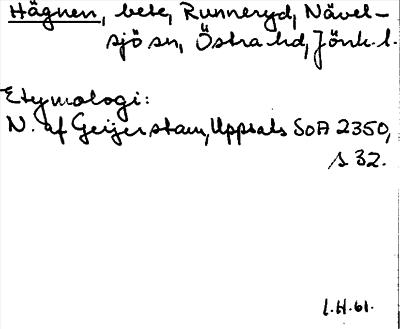 Hägnen, bete, Runneryd, Nävel-
sjö sn, Östra hd, Jönk. l.
Etymologi:
N. af Geijerstam, Uppsats SOA 2350,
s 32.
L.H. 61.